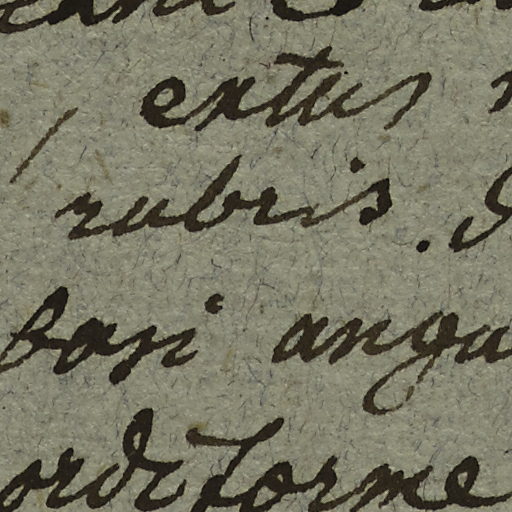 , extus
rubris.
basi angu
ordiforme